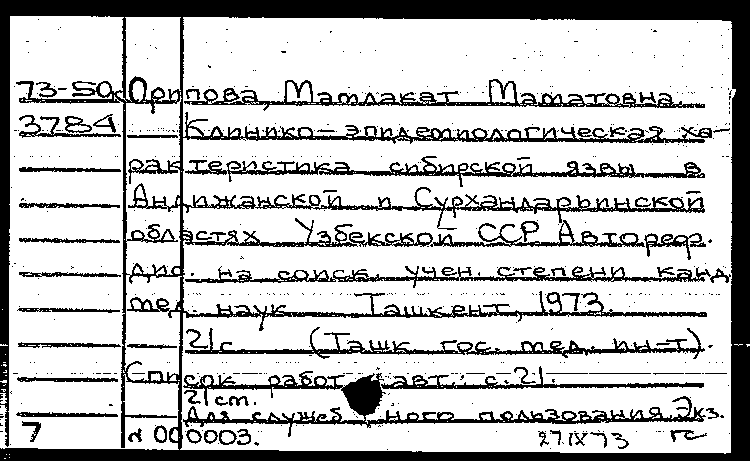 73-50с Орипова, Мамлакат Маматовна.
3784 Клинико-эпидемиологическая ха-
рактеристика сибирской язвы в
Андижанской и Сурхандарьинской
областях Узбекской ССР Автореф.
дис. на соиск. учен. степени канд
мед. наук Ташкент, 1973.
21с (Ташк гос. мед. ин-т).
Список работ авт.: с. 21.
21 cm.
Для служебного пользования. Экз.
7 № 000003. 27 IX 73 гс